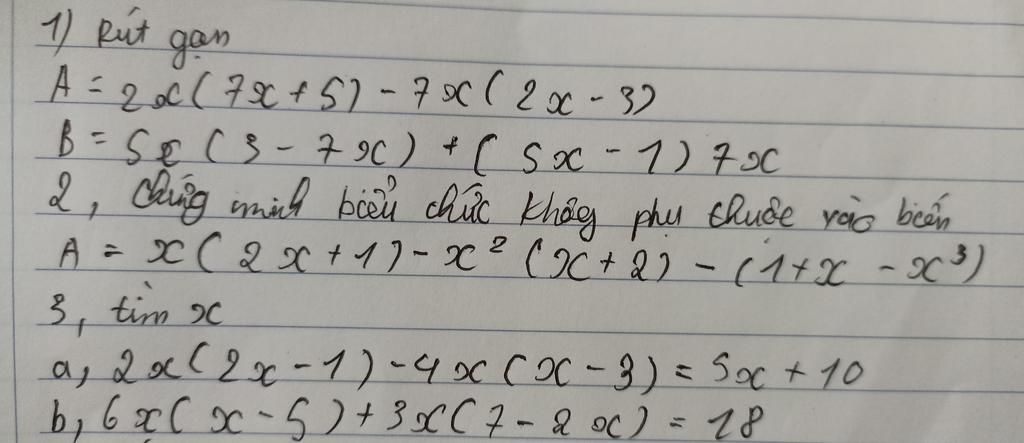 1) Rút gọn
A = 2x(7x+5) - 7x(2x-3)
B = 5x(3-7x) + (5x-1)7x
2, Chứng minh biểu thức không phụ thuộc vào biến
A = x(2x+1) - x²(x+2) - (1+x-x³)
3, tìm x
a, 2x(2x-1) - 4x(x-3) = 5x+10
b, 6x(x-5) + 3x(7-2x) = 18